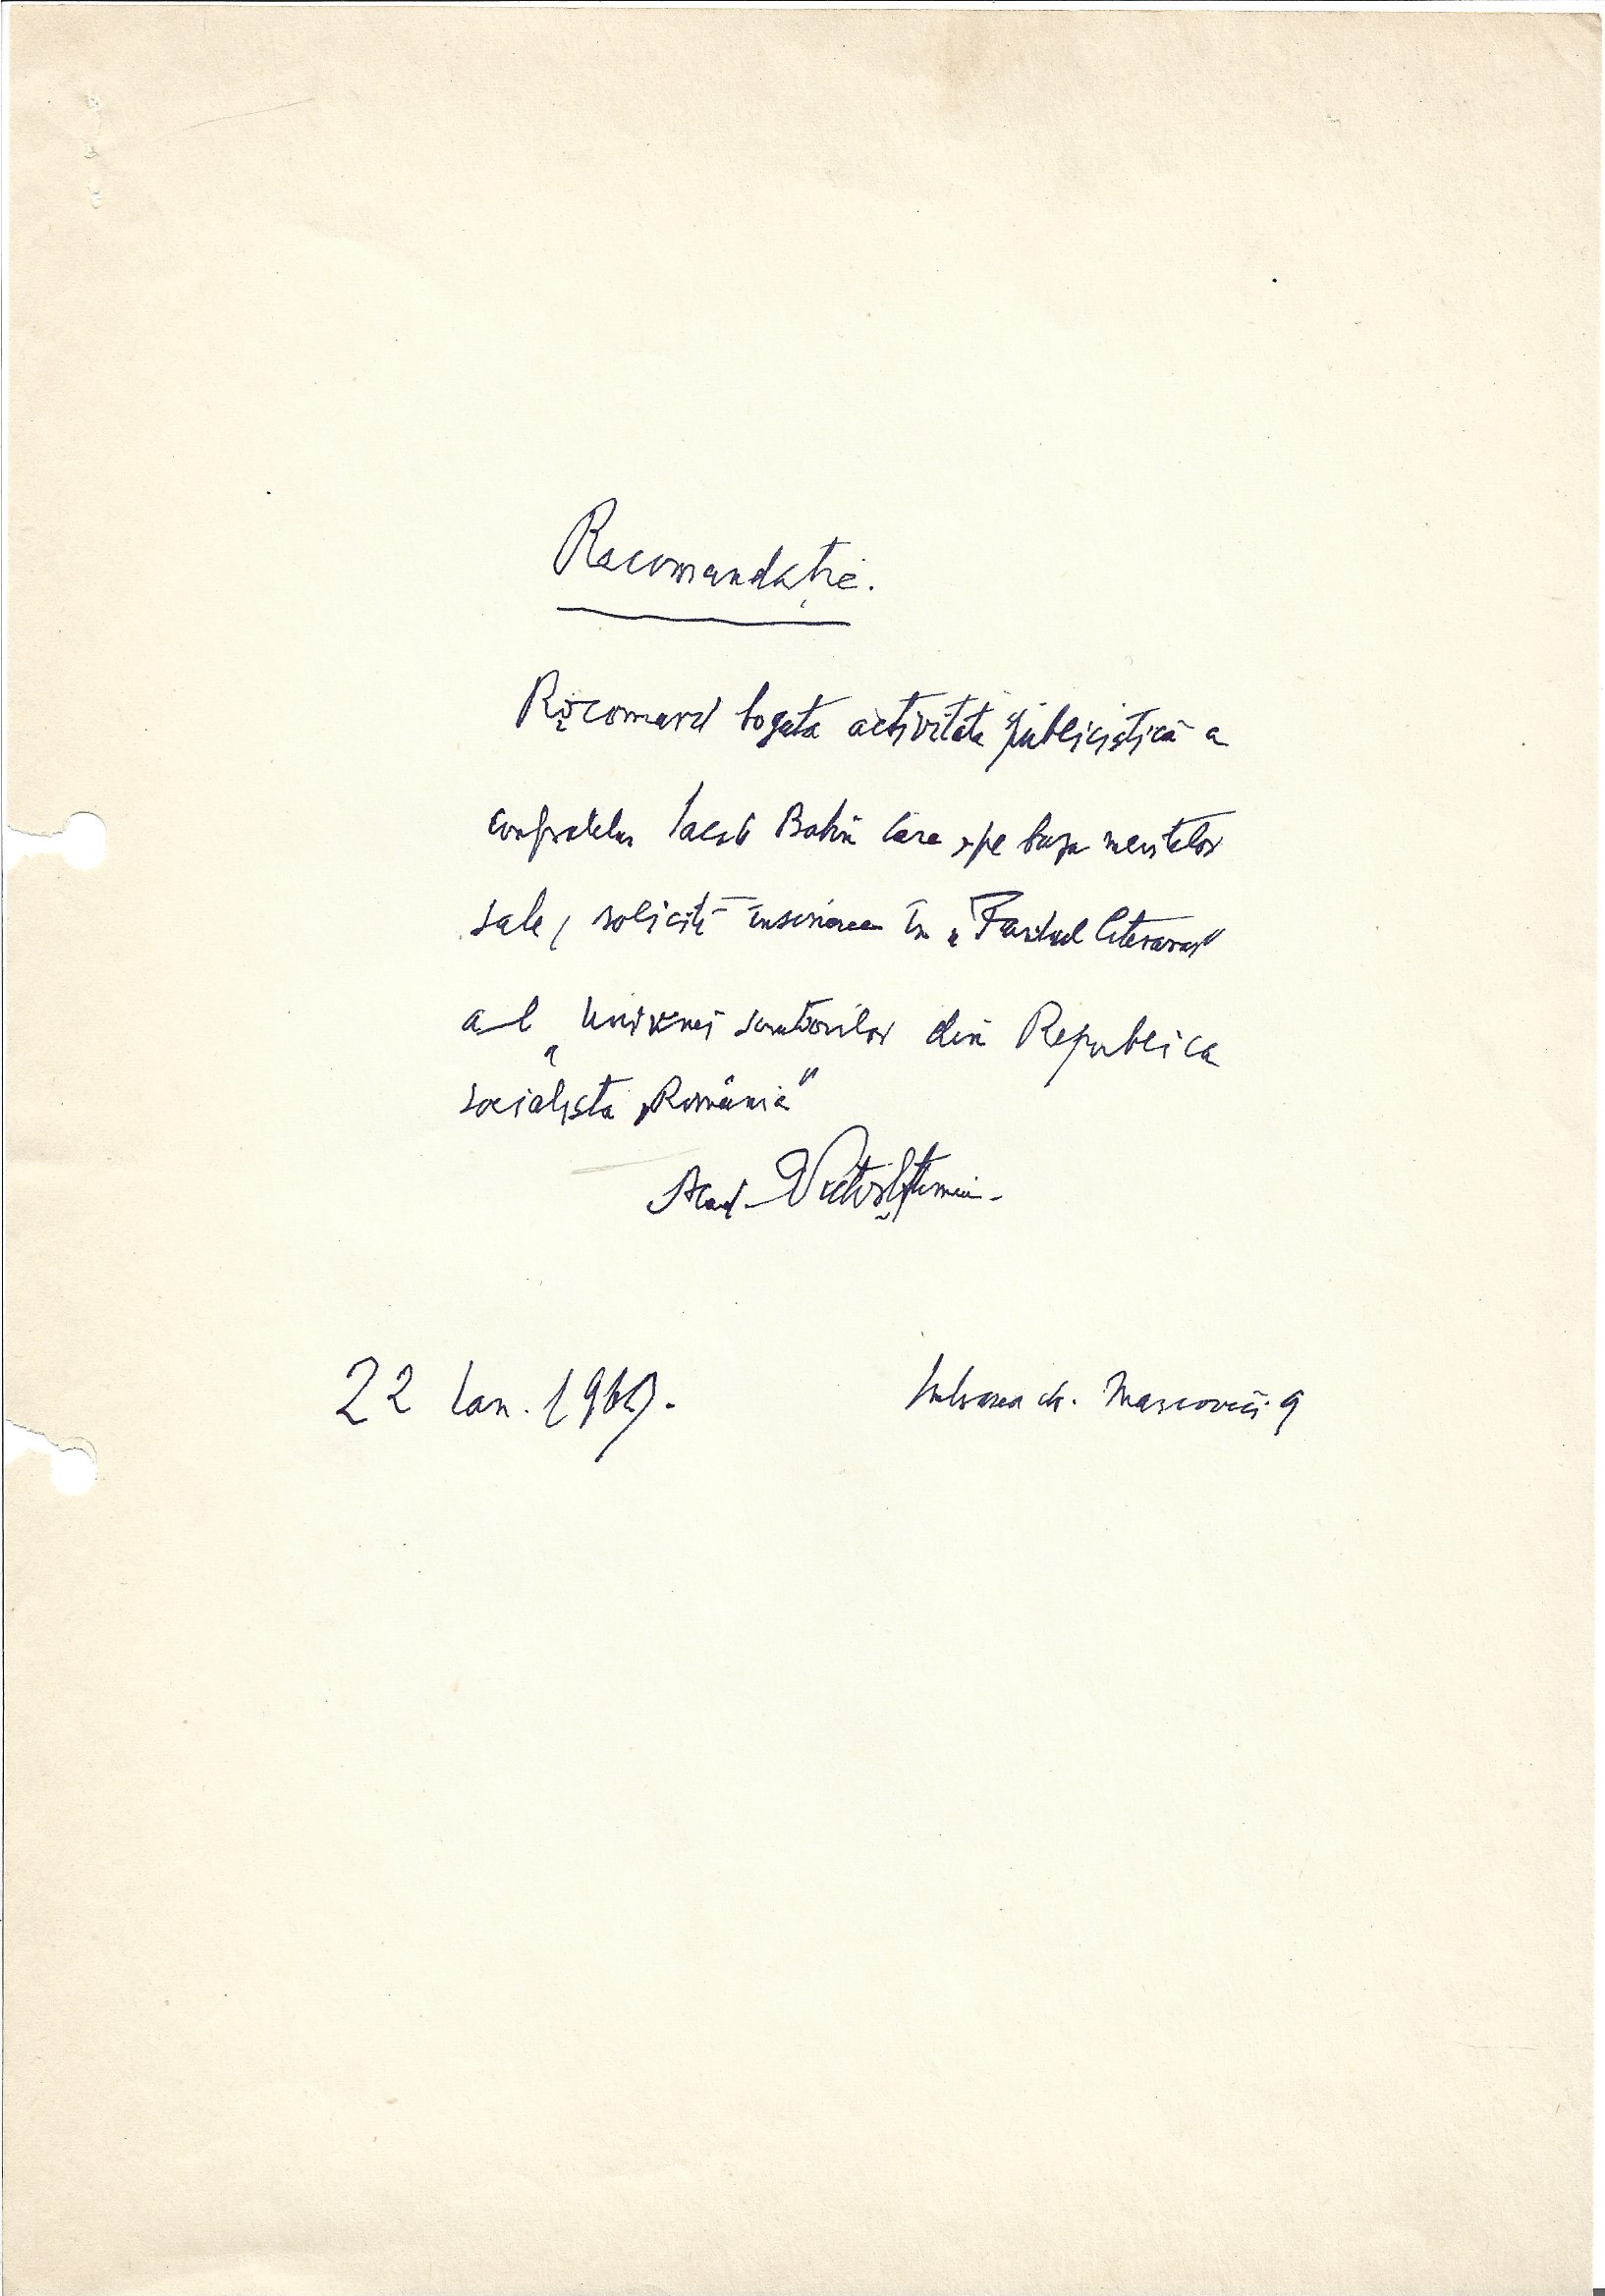 Recomandație.
Recomand bogata activitate publicistică a
confratelui Iacob Babin care, pe baza meritelor
sale, solicită înscrierea în „Fondul literar"
al „Uniunei scriitorilor din Republica
socialistă „România"
Acad. Victor Eftimiu
22 Ian. 1969.
Intrarea dr. Marcovici 9